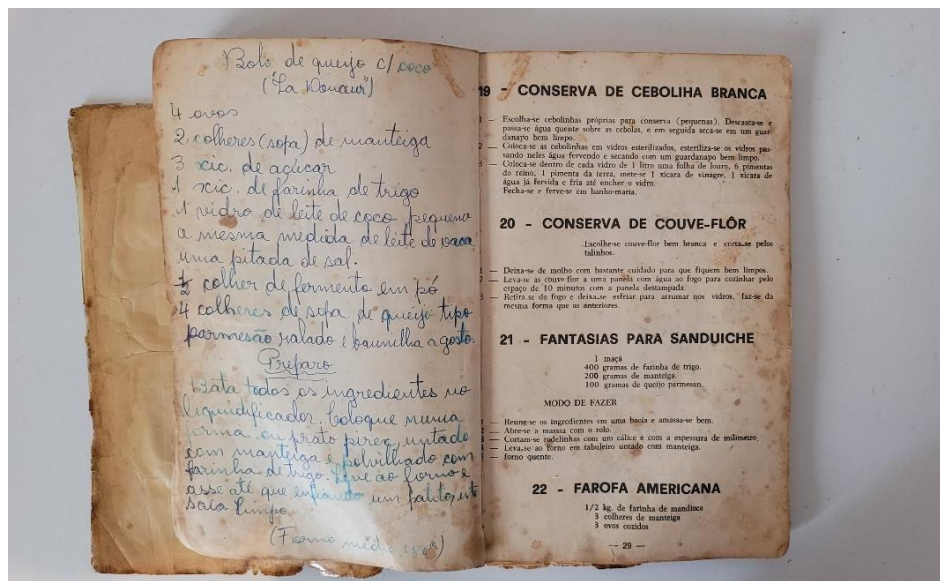 Bolo de queijo c/ coco
4 ovos
2 colheres (sopa) de manteiga
3 xic. de açúcar
1 xic. de farinha de trigo
1 vidro de leite de coco pequeno
a mesma medida de leite de vaca
uma pitada de sal.
½ colher de fermento em pó
4 colheres de sopa de queijo tipo
parmesão ralado e baunilha a gosto.
Preparo
Bata todos os ingredientes no
liquidificador. Coloque numa
forma ou prato pirex, untado
com manteiga e polvilhado com
farinha de trigo. Leve ao forno e
asse até que enfiando um palito, este
saia limpo.
(Forno médio
19 - CONSERVA DE CEBOLIHA BRANCA
— Escolha-se cebolinhas próprias para conserva (pequenas). Descasca-se e
passa-se água quente sobre as cebolas, e em seguida seca-se em um guar
danapo bem limpo.
2 — Coloca-se as cebolinhas em vidros esterilizados, esteriliza-se os vidros pas-
sando neles água fervendo e secando com um guardanapo bem limpo.
3 — Coloca-se dentro de cada vidro de 1 litro uma folha de louro, 6 pimentas
do reino, 1 pimenta da terra, mete-se 1 xícara de vinagre, 1 xícara de
água já fervida e fria até encher o vidro.
Fecha-se e ferve-se em banho-maria.
20 - CONSERVA DE COUVE-FLÔR
Escolhe-se couve-flor bem branca e corta-se pelos
talinhos.
— Deixa-se de molho com bastante cuidado para que fiquem bem limpos.
2 — Leva-se as couve-flor a uma panela com água ao fogo para cozinhar pelo
espaço de 10 minutos com a panela destampada.
3 — Retira-se do fogo e deixa-se esfriar para arrumar nos vidros, faz-se da
mesma forma que as anteriores.
21 - FANTASIAS PARA SANDUICHE
1 maçã
400 gramas de farinha de trigo.
200 gramas de manteiga.
100 gramas de queijo parmesan.
MODO DE FAZER
— Reune-se os ingredientes em uma bacia e amassa-se bem.
— Abre-se a massa com o rolo.
— Cortam-se rodelinhas com um cálice e com a espessura de milímetro.
— Leva-se ao forno em tabuleiro untado com manteiga.
— Forno quente.
22 - FAROFA AMERICANA
1/2 kg. de farinha de mandioca
3 colheres de manteiga
3 ovos cozidos
— 29 —